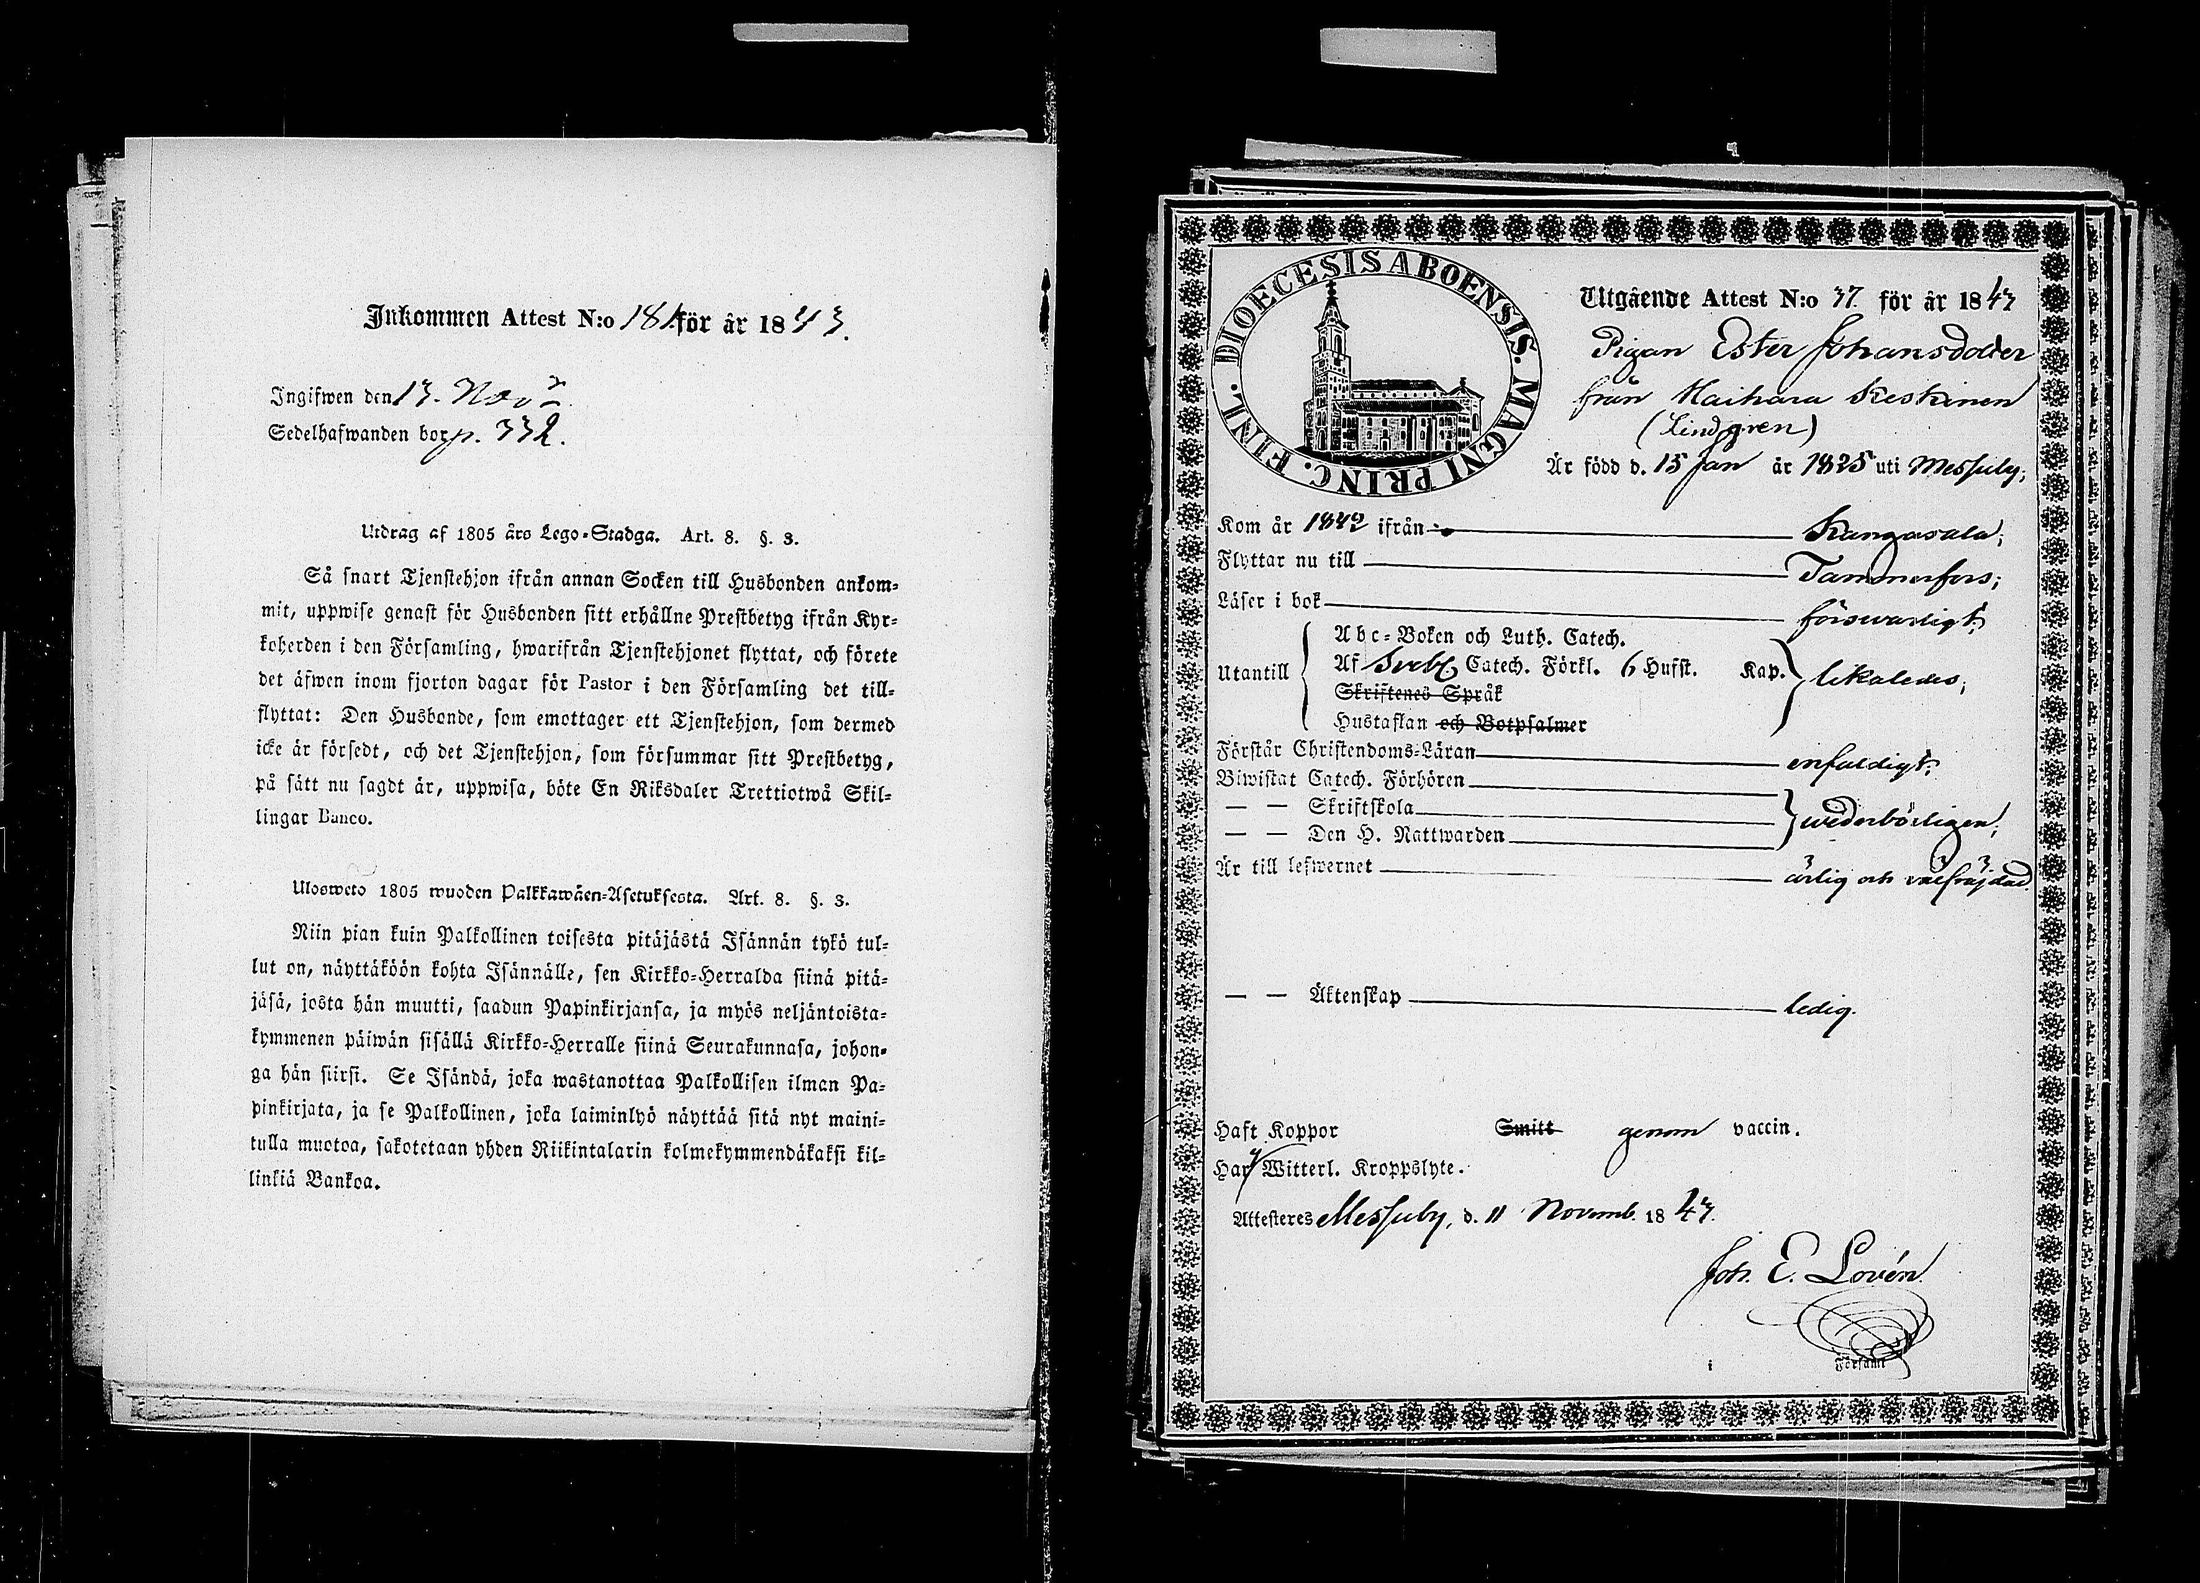 Inkommen Attest N:o 181 för år 1843.
Ingifwen den 13. Nov
Sedelhafwanden bor p. 332.
Utdrag af 1805 års Lego-Stadga. Art. 8. §. 3.
Så snart Tjenstehjon ifrån annan Socken till Husbonden ankom-
mit, uppwise genast för Husbonden sitt erhållne Prestbetyg ifrån Kyr-
koherden i den Församling, hwarifrån Tjenstehjonet flyttat, och förete
det äfwen inom fjorton dagar för Pastor i den Församling det till-
flyttat: Den Husbonde, som emottager ett Tjenstehjon, som dermed
icke är försedt, och det Tjenstehjon, som försummar sitt Prestbetyg,
på sätt nu sagdt är, uppwisa, böte En Riksdaler Trettiotwå Skil-
lingar Banco.
Ulosweto 1805 wuoden Palkkawäen-Asetuksesta. Art. 8. §. 3.
Niin pian kuin Palkollinen toisesta pitäjästä Isännän tykö tul-
lut on, näyttäköön kohta Isännälle, sen Kirkko-Herralda siinä pitä-
jäsä, josta hän muutti, saadun Papinkirjansa, ja myös neljäntoista-
kymmenen päiwän sisällä Kirkko-Herralle siinä Seurakunnasa, johon-
ga hän siirsi. Se Isändä, joka wastanottaa Palkollisen ilman Pa-
pinkirjata, ja se Palkollinen, joka laiminlyö näyttää sitä nyt maini-
tulla muotoa, sakotetaan yhden Riikintalarin kolmekymmendäkaksi kil-
linkiä Bankoa.
DIOECESIS ABOENSIS. MAGNI PRINC. FINL.
Utgående Attest N:o 37 för år 1843
Pigan Ester Johansdotter
från Haihara Keskinen
(Lindgren)
Är född d. 15 Jan år 1825 uti Messuby;
Kom år 1842 ifrån Kangasala;
Flyttar nu till Tammerfors;
Läser i bok försvarligt;
Utantill Abc-Boken och Luth. Catech.
Af Svebl. Catech. Förkl. 6 Hufst. Kap. likaledes;
Skriftenes Språk
Hustaflan och Botpsalmer
Förstår Christendoms-Läran enfaldigt;
Biwistat Catech. Förhören
— — Skriftskola wederbörligen;
— — Den H. Nattwarden
Är till lefwernet ärlig och välfräjdad.
— — Äktenskap ledig.
Haft Koppor Smitt genom vaccin.
Har Witterl. Kroppslyte.
Attesteres Messuby, d. 11 Novemb. 1843.
Joh. E. Lovén.
i Församl